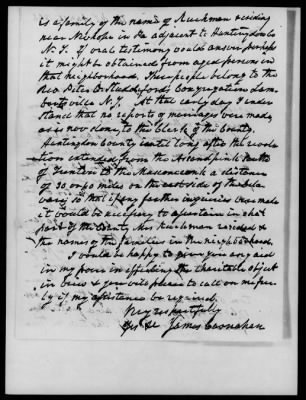 is a family of the name of Ruckman residing
near New hope in Pa adjacent to Hunterdon Co
N. J. If oral testimony would answer perhaps
it might be obtained from aged persons in
that neighborhood. These people belong to the
Rev. Peter O. Studdifords Congregation Lam-
bertsville N. J. At that early day I under
stand that no reports of marriages were made
as is now done, to the Clerk of the County.
Hunterdon County until long after the revolu
tion extended from the Assanpink
Trenton to the Musconecunk a distance
of 30 or 40 miles on the east side of the Dela
ware, so that if any further inquiries were made
it would be necessary to ascertain in what
part of the County Mrs Ruckman resided &
the names of the families in the neighborhood.
I would be happy to give you any aid
in my power in effecting the charitable object
in view & you will please to call on me free
ly if my assistance be required.
Very respectfully
Yrs &c James